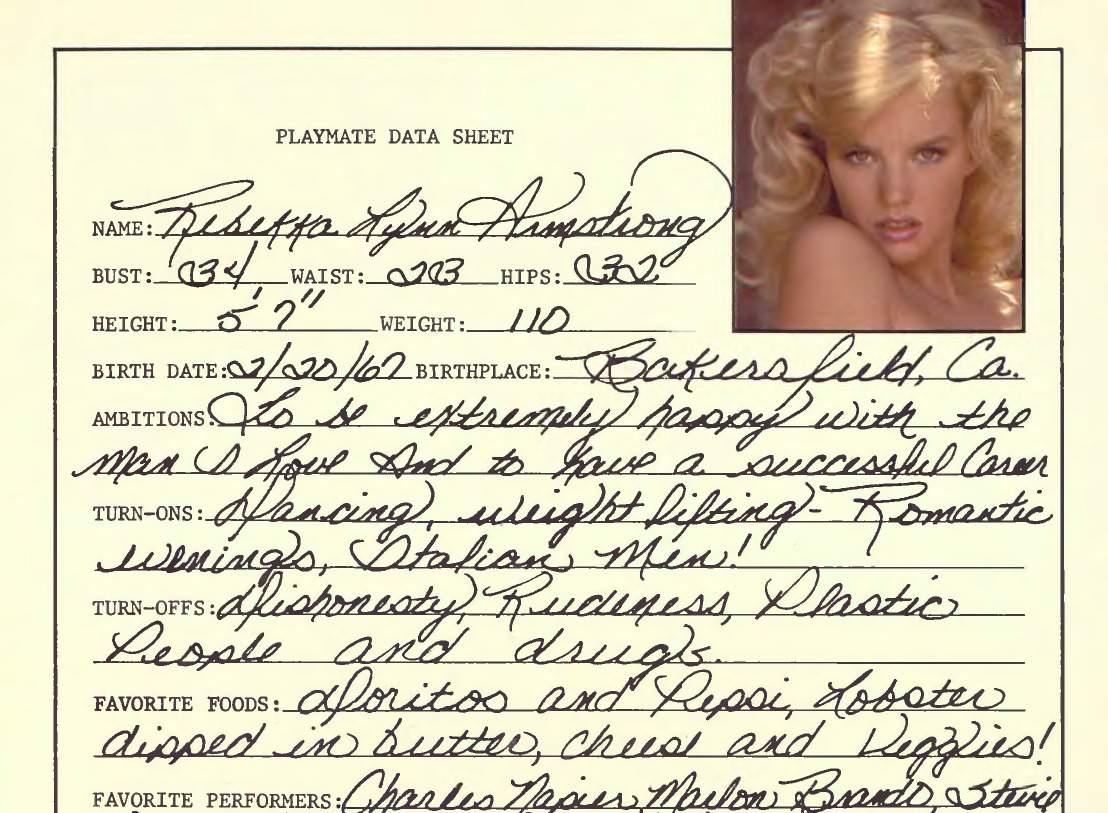 PLAYMATE DATA SHEET
NAME: Rebekka Lynn Armstrong
BUST: 34 WAIST: 23 HIPS: 32
HEIGHT: 5'7" WEIGHT: 110
BIRTH DATE: 2/20/67 BIRTHPLACE: Bakersfield, Ca.
AMBITIONS: To be extremely happy with the
Man I Love And to have a successful Career
TURN-ONS: Dancing, weight lifting- Romantic
evenings, Italian Men!
TURN-OFFS: Dishonesty, Rudeness, Plastic
People and drugs.
FAVORITE FOODS: Doritos and Pepsi, Lobster
dipped in butter, cheese and Veggies!
FAVORITE PERFORMERS: Charles Napier, Marlon Brando, Stevie